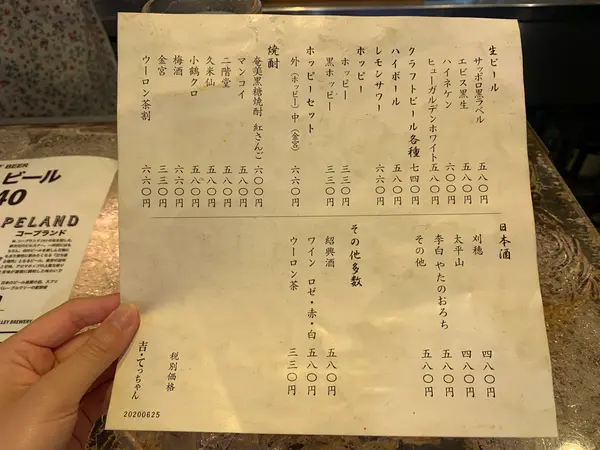 生ビール
サッポロ黒ラベル 五八〇円
エビス黒生 五八〇円
ハイネケン 六〇〇円
ヒューガルデンホワイト 五八〇円
クラフトビール各種 七四〇円
ハイボール 五八〇円
レモンサワー 六六〇円
ホッピー
ホッピー 三三〇円
黒ホッピー 三三〇円
ホッピーセット
外(ホッピー)中(金宮) 六六〇円
焼酎
奄美黒糖焼酎 紅さんご 六〇〇円
マンコイ 五八〇円
二階堂 五八〇円
久米仙 五八〇円
小鶴クロ 五八〇円
梅酒 六六〇円
金宮 三三〇円
ウーロン茶割 六六〇円
日本酒
刈穂 四八〇円
太平山 四八〇円
李白 やたのおろち 五八〇円
その他 五八〇円
その他多数
紹興酒 五八〇円
ワイン ロゼ・赤・白 五八〇円
ウーロン茶 三三〇円
税別価格
吉・てっちゃん
20200625
BEER
ビール
40
PELAND
コープランド
LLEY BREWERY